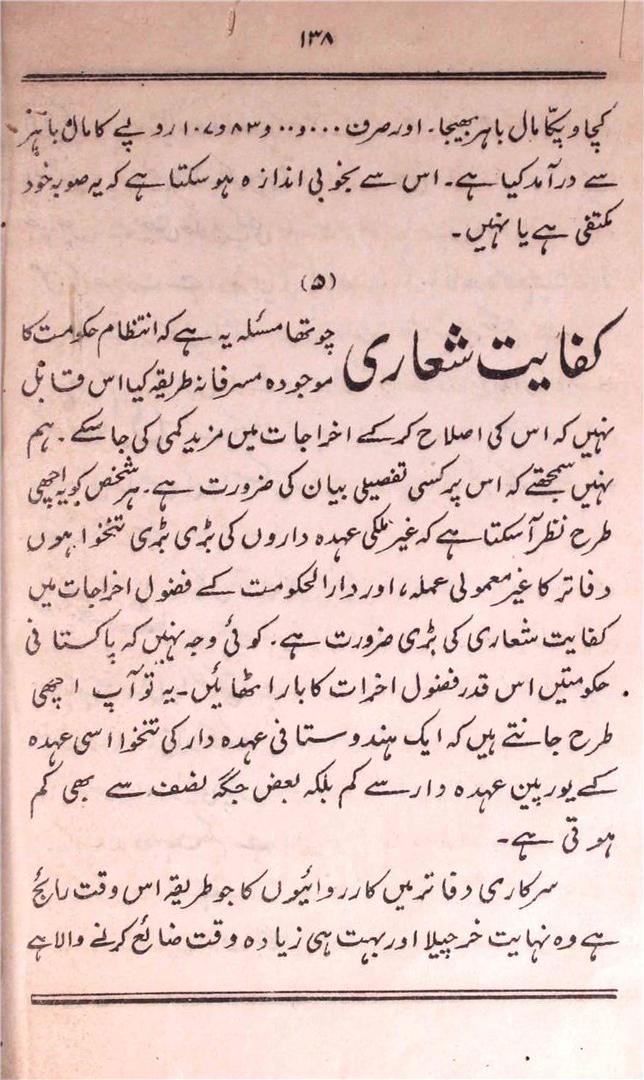 ۱۳۸
کچا و پکّا مال باہر بھیجا۔ اور صرف ۰۰۰و۰۰و۸۳و۱۰۷ روپے کا مال باہر
سے درآمد کیا ہے۔ اس سے بخوبی اندازہ ہو سکتا ہے کہ یہ صوبہ خود
مکتفی ہے یا نہیں۔
(۵)
کفایت شعاری
چوتھا مسئلہ یہ ہے کہ انتظام حکومت کا
موجودہ مسرفانہ طریقہ کیا اس قابل
نہیں کہ اس کی اصلاح کرکے اخراجات میں مزید کمی کی جاسکے۔ ہم
نہیں سمجھتے کہ اس پر کسی تفصیلی بیان کی ضرورت ہے۔ ہر شخص کو یہ اچھی
طرح نظر آسکتا ہے کہ غیر ملکی عہدہ داروں کی بڑی بڑی تنخواہوں
دفاتر کا غیر معمولی عملہ، اور دارالحکومت کے فضول اخراجات میں
کفایت شعاری کی بڑی ضرورت ہے۔ کوئی وجہ نہیں کہ پاکستانی
حکومتیں اس قدر فضول اخرات کا بار اٹھائیں۔ یہ تو آپ اچھی
طرح جانتے ہیں کہ ایک ہندوستانی عہدہ دار کی تنخوا اسی عہدہ
کے یورپین عہدہ دار سے کم بلکہ بعض جگہ نصف سے بھی کم
ہوتی ہے۔
سرکاری دفاتر میں کارروائیوں کا جو طریقہ اس وقت رائج
ہے وہ نہایت خرچیلا اور بہت ہی زیادہ وقت ضائع کرنے والا ہے